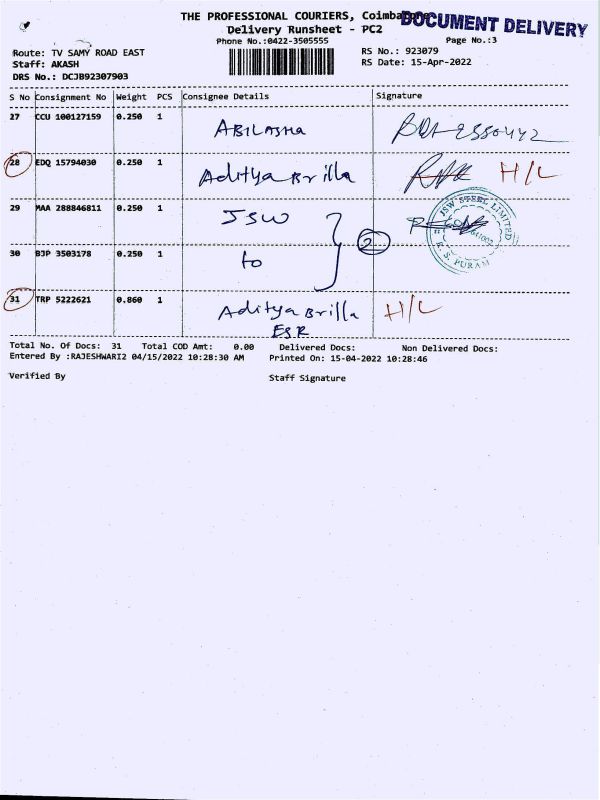 THE PROFESSIONAL COURIERS, Coimbatore
DOCUMENT DELIVERY
Delivery Runsheet - PC2
Phone No.:0422-3505555
Page No.:3
Route: TV SAMY ROAD EAST
RS No.: 923079
Staff: AKASH
RS Date: 15-Apr-2022
DRS No.: DCJB92307903
S No Consignment No Weight PCS Consignee Details Signature
27 CCU 100127159 0.250 1 ABILASHA
28 EDQ 15794030 0.250 1 Aditya Brilla H/L
29 MAA 288846811 0.250 1 JSW
JSW STEEL LIMITED
R. S. PURAM
2
30 BJP 3503178 0.250 1 to
31 TRP 5222621 0.860 1 Aditya Brilla H/L
ESR
Total No. Of Docs: 31 Total COD Amt: 0.00 Delivered Docs: Non Delivered Docs:
Entered By :RAJESHWARI2 04/15/2022 10:28:30 AM Printed On: 15-04-2022 10:28:46
Verified By Staff Signature